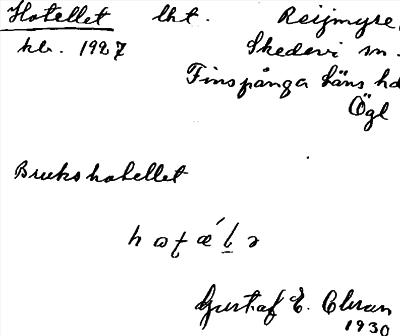 Hotellet lht. Reijmyre,
hb. 1927 Skedevi sn.
Finspånga läns hd
Ögl
Brukshotellet
Gustaf E. Clson
1930